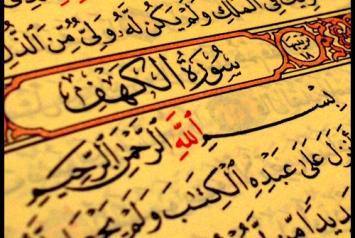 فِي الْمُلْكِ وَلَمْ يَكُن لَّهُ وَلِيٌّ مِّنَ الذُّلِّ
سُورَةُ الْكَهْفِ
بِسْمِ اللَّهِ الرَّحْمَٰنِ الرَّحِيمِ
أَنزَلَ عَلَىٰ عَبْدِهِ الْكِتَابَ وَلَمْ يَجْعَل